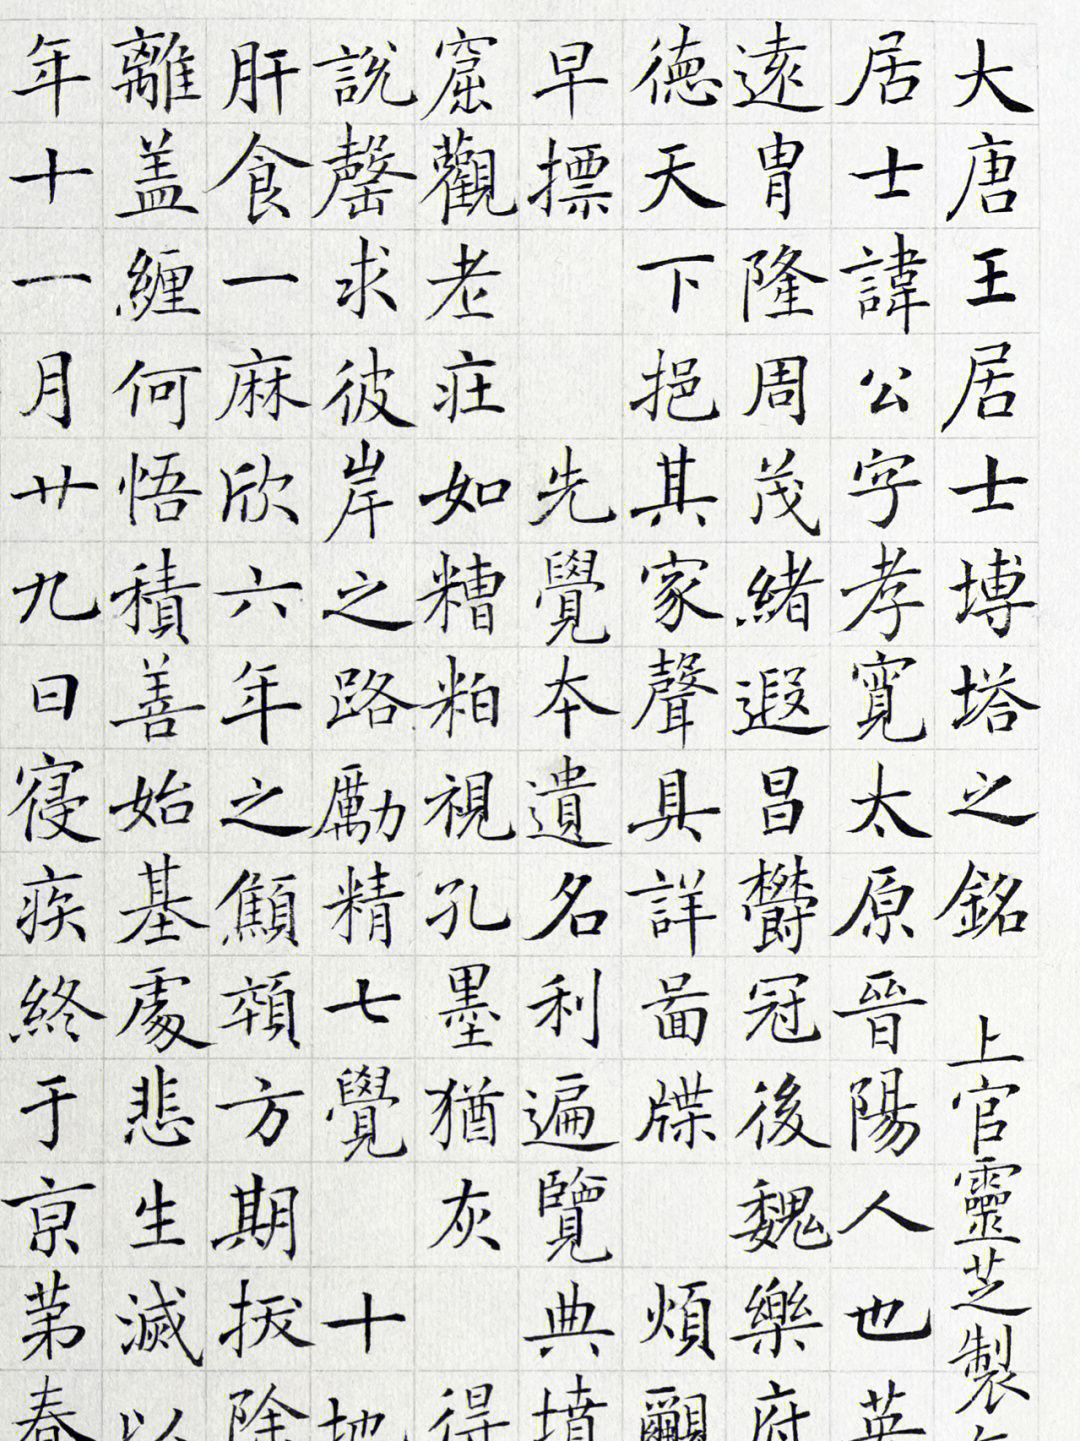 大唐王居士塼塔之銘 上官靈芝製
居士諱公字孝寬太原晉陽人也英
遠冑隆周茂緒遐昌欝冠後魏樂府
德天下挹其家聲具詳啚牒 煩覼
早摽 先覺本遺名利遍覽典墳
窟觀老莊如糟粕視孔墨猶灰 得
說罄求彼岸之路勵精七覺 十地
肝食一麻欣六年之顦顇方期拔除
離盖纏何悟積善始基處悲生滅以
年十一月廿九日寑疾終于亰苐春